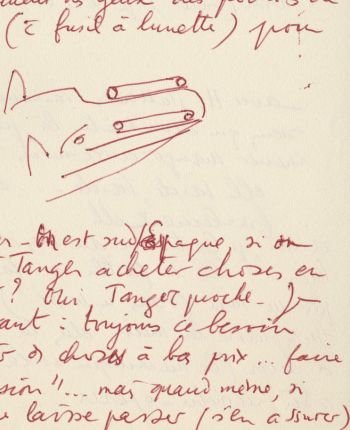 (ē fusil à lunette) pour
est sur Espagne, si on
Tanger acheter choses en
? Oui Tanger proche_)_
ant : toujours ce besoin
choses à bas prix... faire
sion"... mais quand même, si
laisse passer (s'en assurer)